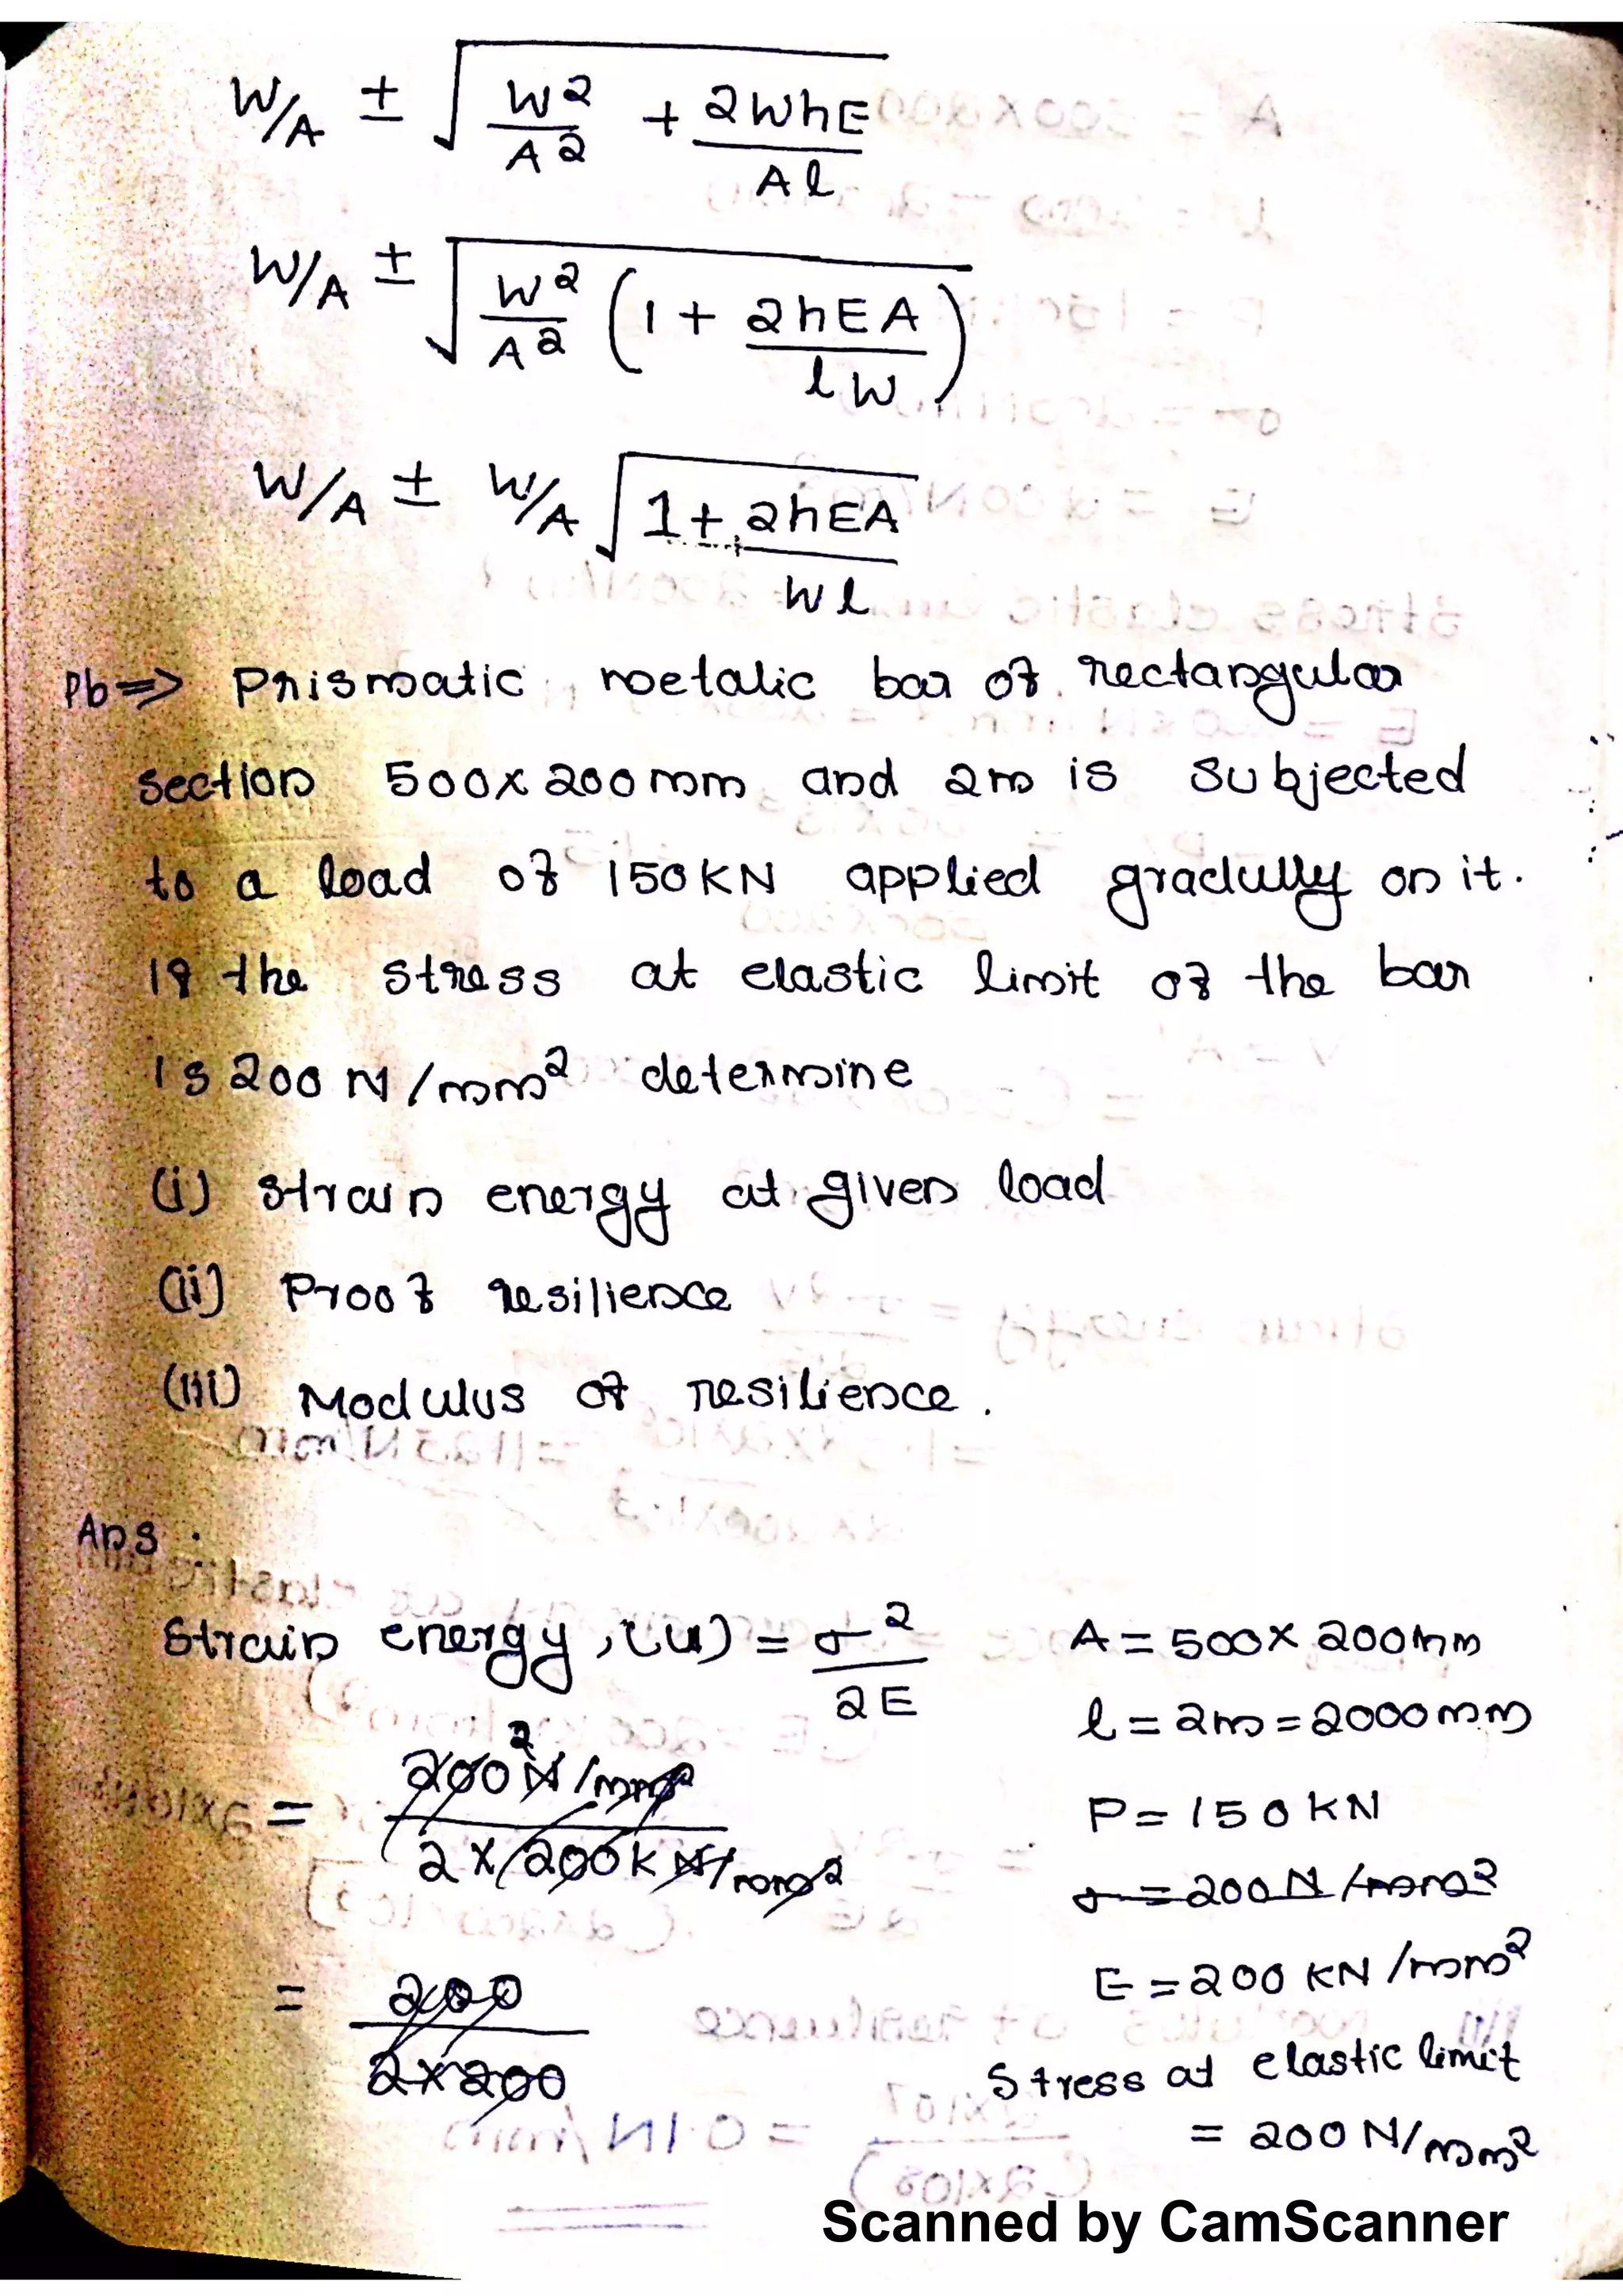 W/A ± √(W²/A² + 2WhE/Al)
W/A ± √(W²/A² (1 + 2hEA/lW))
W/A ± W/A √(1 + 2hEA/Wl)
Pb=> Prismatic metalic bar of rectangular
section 500x200mm and 2m is subjected
to a load of 150KN applied gradully on it.
If the stress at elastic limit of the bar
is 200 N/mm² determine
(i) strain energy at given load
(ii) Proof resilience
(iii) Modulus of resilience.
Ans :
Strain energy, (u) = σ²/2E
= 200² N/mm² / 2 x 200k N/mm²
= 200 / 2x200
A = 500x 200mm
l = 2m = 2000mm
P = 150 KN
σ = 200 N/mm²
E = 200 KN/mm²
Stress at elastic limit
= 200 N/mm²
Scanned by CamScanner